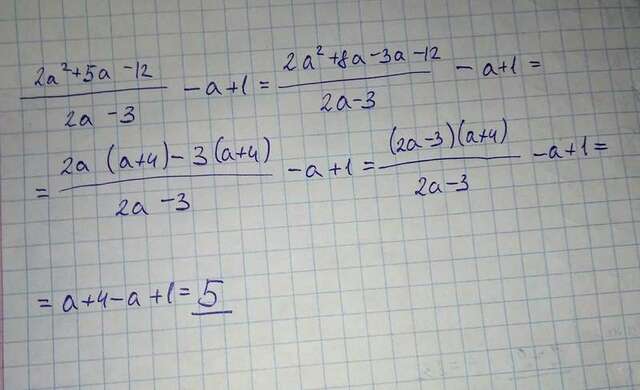 (2a²+5a-12)/(2a-3) -a+1 = (2a²+8a-3a-12)/(2a-3) -a+1 =
= (2a(a+4)-3(a+4))/(2a-3) -a+1 = ((2a-3)(a+4))/(2a-3) -a+1 =
= a+4-a+1 = 5